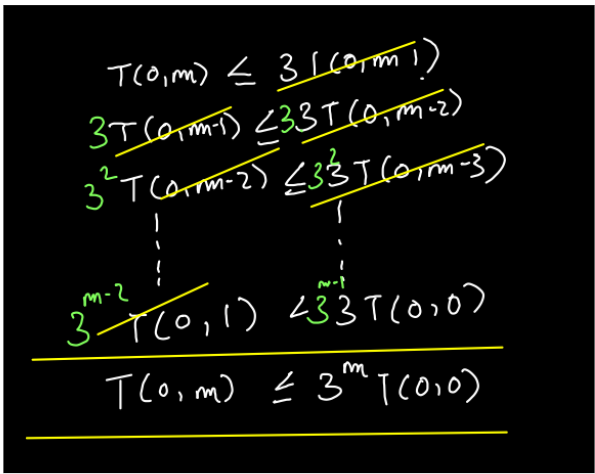 T(0,m) ≤ 3T(0,m-1)
3T(0,m-1) ≤ 33T(0,m-2)
3²T(0,m-2) ≤ 3²3T(0,m-3)
3^{m-2} T(0,1) < 3^{m-1} 3T(0,0)
T(0,m) ≤ 3^m T(0,0)